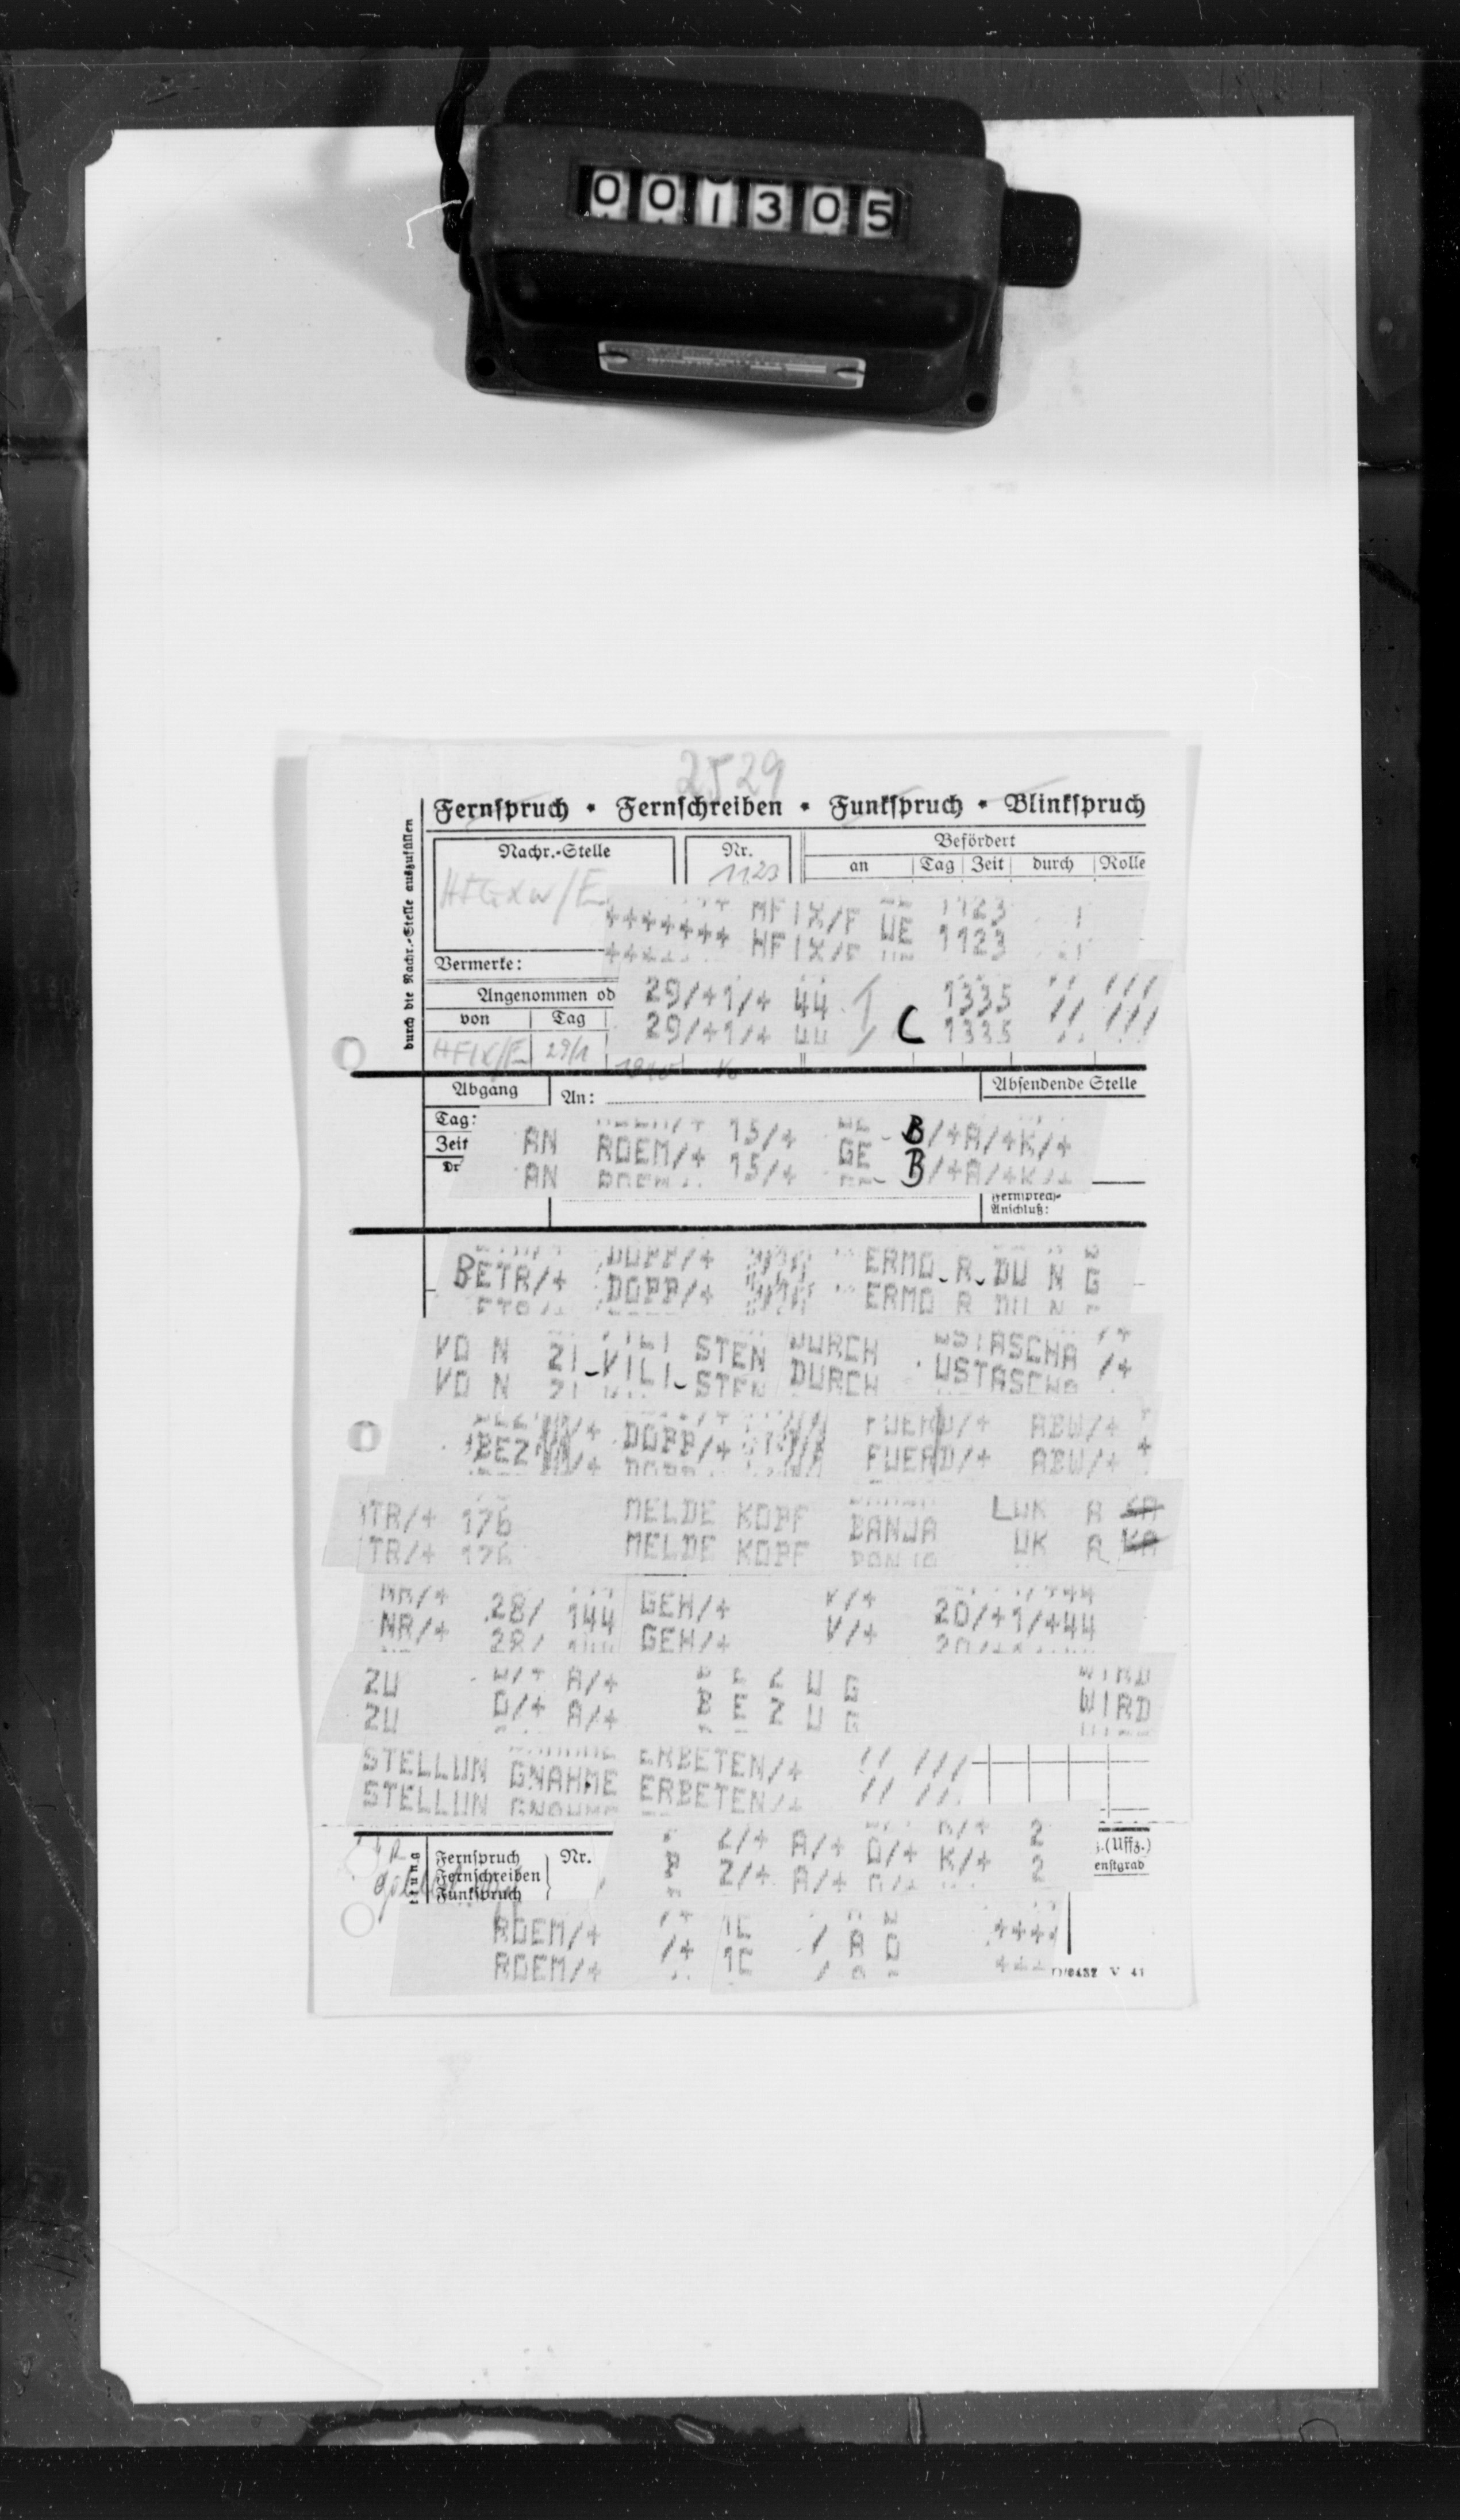 001305
2529
Fernspruch • Fernschreiben • Funkspruch • Blinkspruch
durch die Nachr.-Stelle auszufüllen
Nachr.-Stelle
Nr.
1123
Befördert
an Tag Zeit durch Rolle
+++++++ HFIX/F UE 1123
Vermerke:
Angenommen od
von Tag
29/+1/+ 44 C 1335 // ///
HFIX/F 29/1
Abgang
An:
Absendende Stelle
Tag:
Zeit
AN ROEM/+ 15/+ GE B/+A/+K/+
Fernsprech-
Anschluß:
BETR/+ DOPP/+ ERMO R DU N G
VO N ZI VILI STEN DURCH USTASCHA /+
BEZ /+ DOPP/+ FUERD/+ ABW/+ +
TR/+ 176 MELDE KOPF BANJA LUK A KA
NR/+ 28/ 144 GEH/+ V/+ 20/+1/+44
ZU O/+ A/+ B E Z U G WIRD
STELLUN GNAHME ERBETEN/+ // ///
R Z/+ A/+ O/+ K/+ 2
Fernspruch
Fernschreiben
Funkspruch
Nr.
.(Uffz.)
enstgrad
ROEM/+ /+ 1C / A O ++++